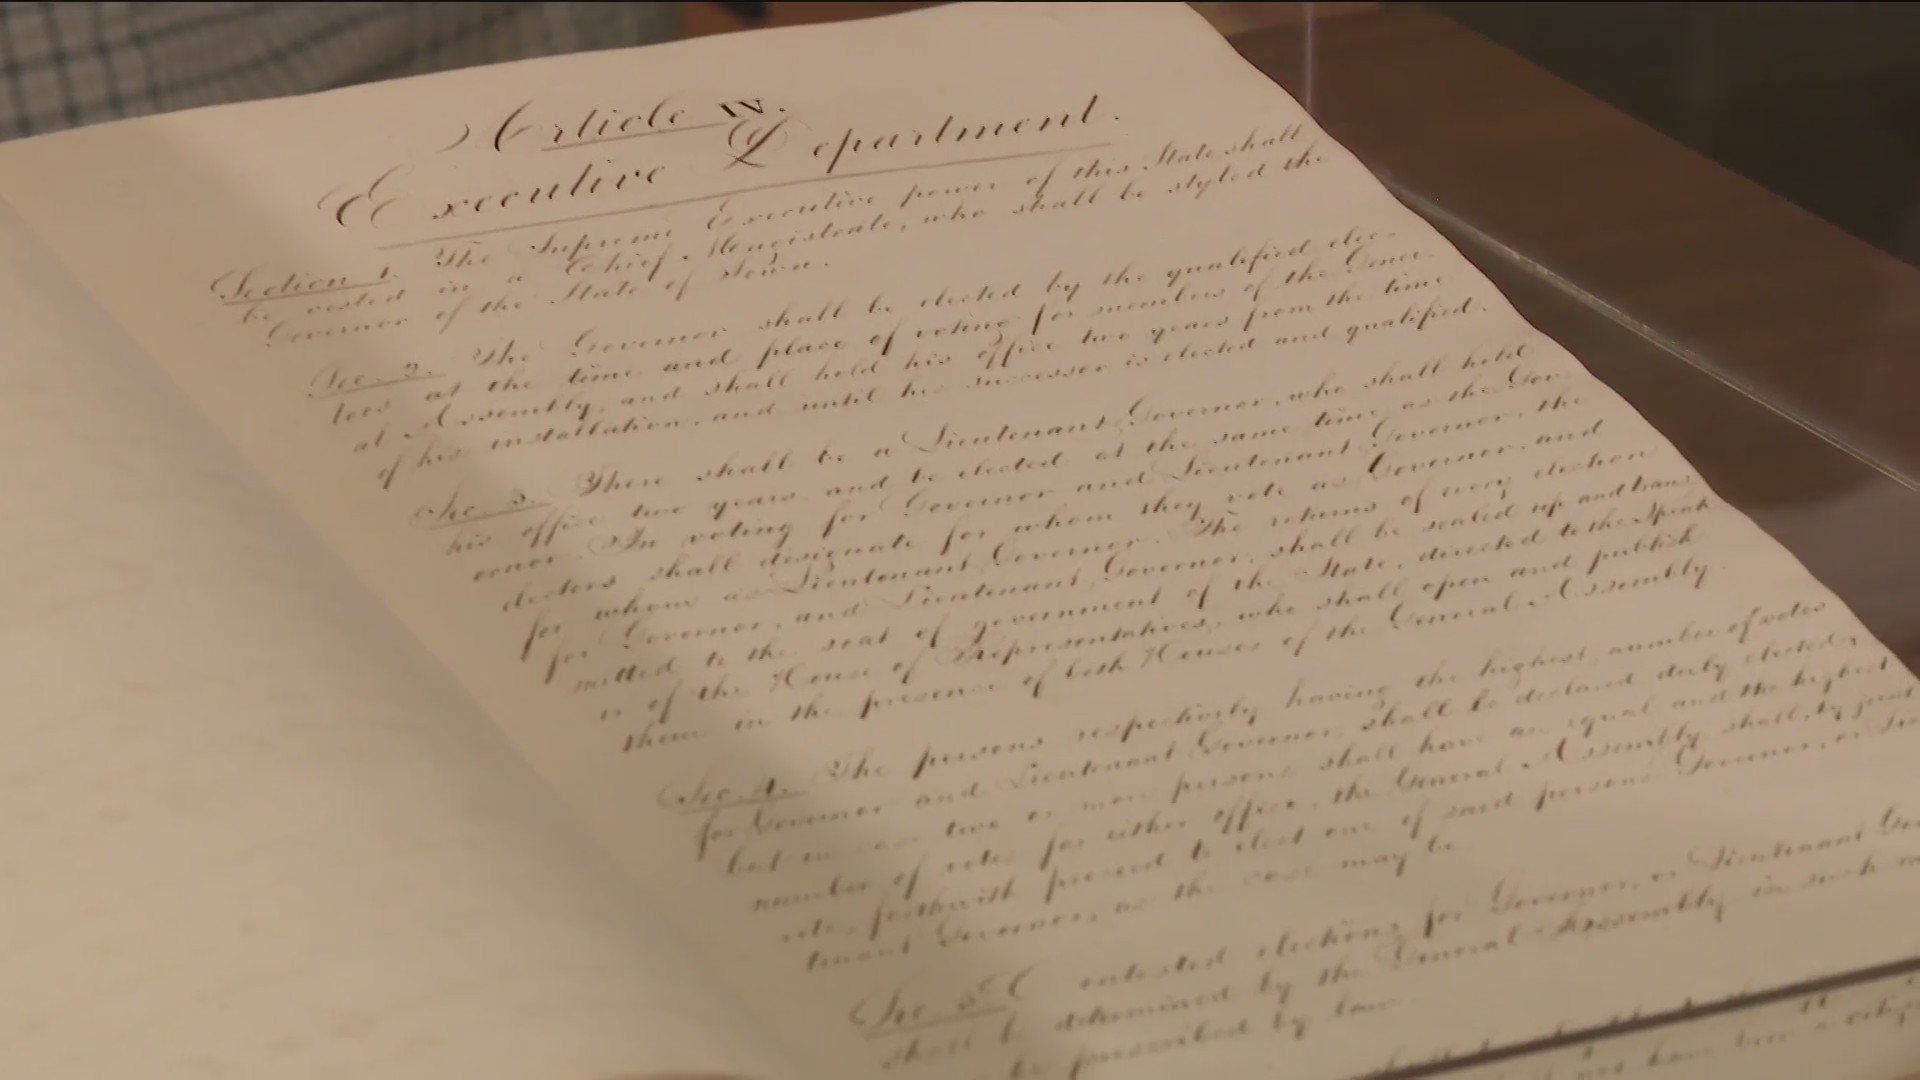 Article IV.
Executive Department.
Section 1. The Supreme Executive power of this State shall
be vested in a Chief Magistrate, who shall be styled the
Governor of the State of Iowa.
Sec. 2. The Governor shall be elected by the qualified elec-
tors at the time and place of voting for members of the Gener-
al Assembly, and shall hold his office two years from the time
of his installation, and until his successor is elected and qualified.
Sec. 3. There shall be a Lieutenant Governor, who shall hold
his office two years, and be elected at the same time as the Gov-
ernor. In voting for Governor and Lieutenant Governor, the
electors shall designate for whom they vote as Governor, and
for whom as Lieutenant Governor. The returns of every election
for Governor, and Lieutenant Governor, shall be sealed up and trans
mitted to the seat of government of the State, directed to the Speak
er of the House of Representatives, who shall open and publish
them in the presence of both Houses of the General Assembly.
Sec. 4. The persons respectively having the highest number of votes
for Governor and Lieutenant Governor, shall be declared duly elected;
but in case two or more persons shall have an equal and the highest
number of votes for either office, the General Assembly shall, by joint
vote, forthwith proceed to elect one of said persons Governor, or Lieu
tenant Governor, as the case may be.
Sec. 5. Contested elections for Governor, or Lieutenant Gov
shall be determined by the General Assembly in such
be prescribed by law.
shall
not have been a citiz